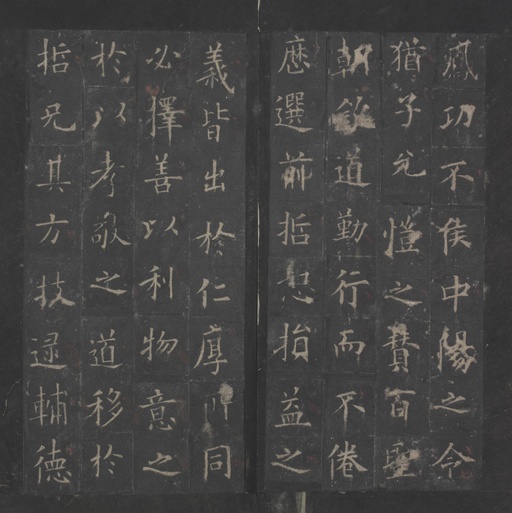 功不侯中陽之令
猶子元愷之贊百聖
欽道勤行而不倦
歷選前哲忠損益之
義皆出於仁厚所同
必擇善以利物意之
於以孝敬之道移於
哲兄其方技逯輔德